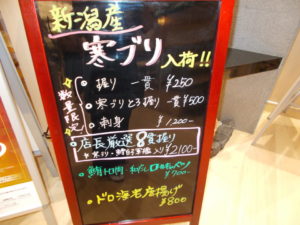 新潟産
寒ブリ入荷!!
数量限定
・握り 一貫 ¥250
・寒ブリとろ握り 一貫 ¥500
・刺身 ¥1200-
・店長厳選8貫握り
入り 2100-
・鮪トロ肉
¥900-
・ドロ海老唐揚げ
¥800